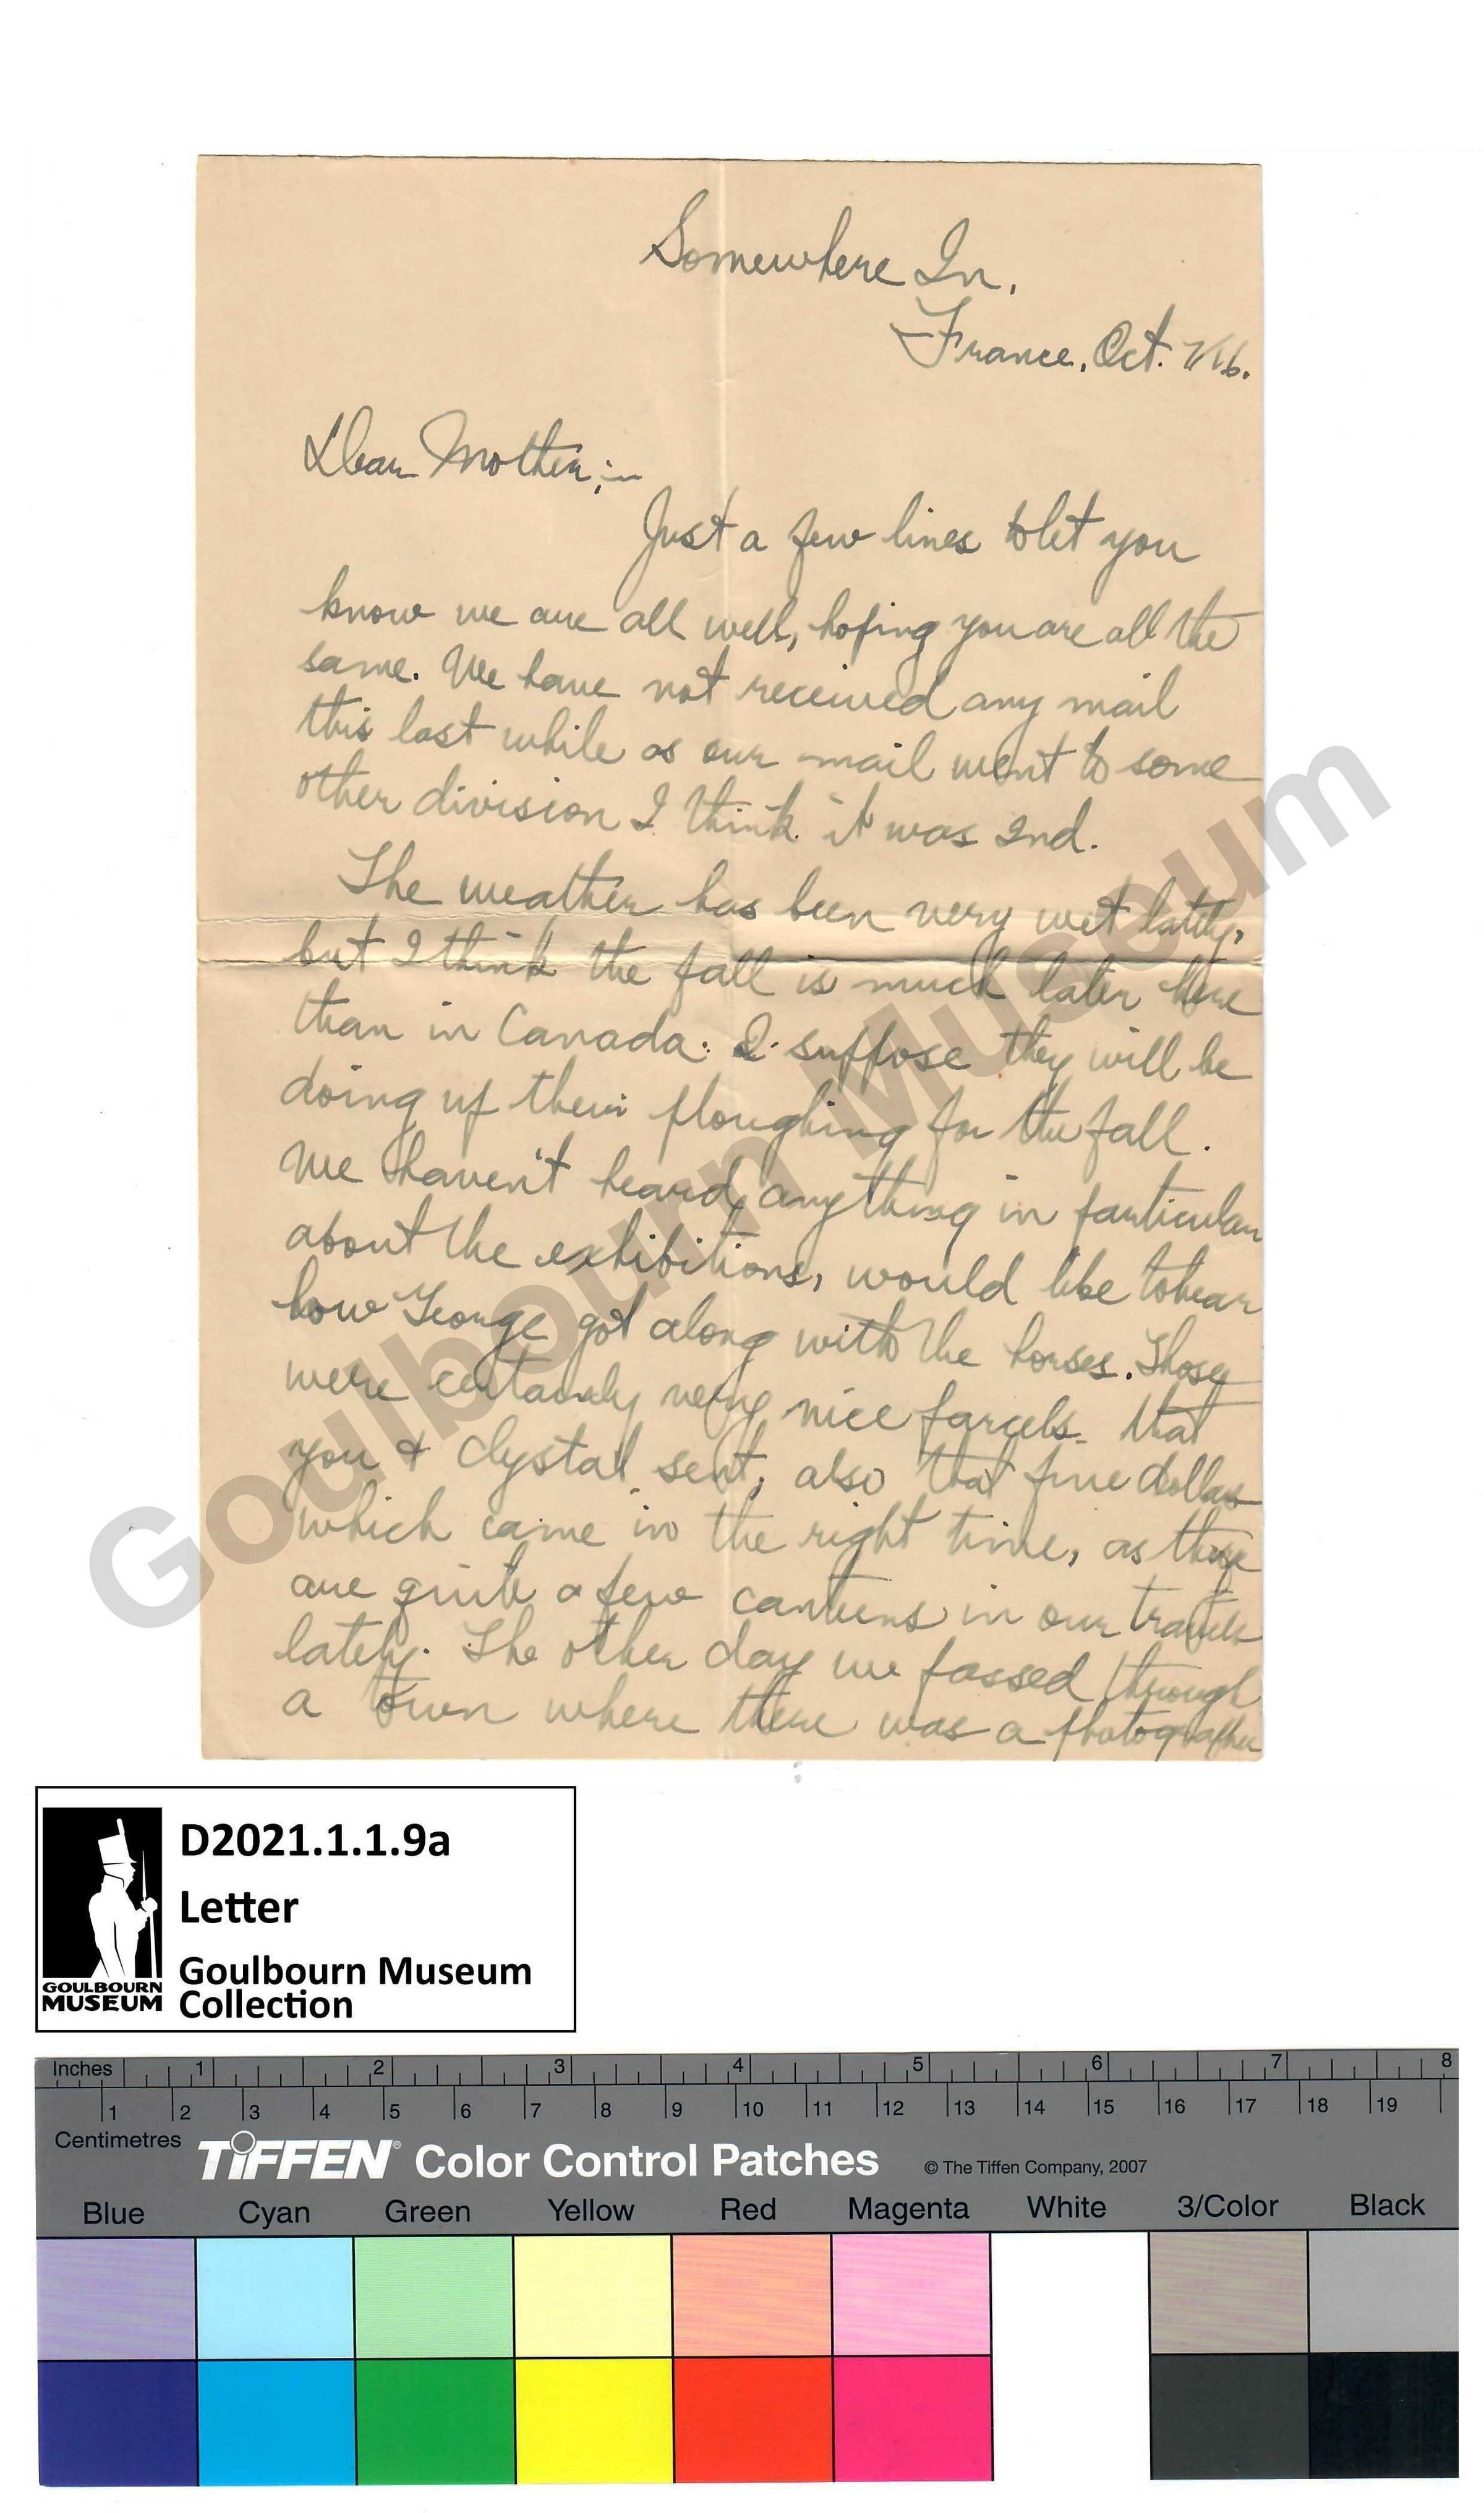 Somewhere In,
France, Oct. 7/16.
Dear Mother;-
Just a few lines to let you
know we are all well, hoping you are all the
same. We have not received any mail
this last while as our mail went to some
other division I think it was 2nd.
The weather has been very wet lately,
but I think the fall is much later here
than in Canada. I suppose they will be
doing up their ploughing for the fall.
We haven't heard anything in particular
about the exhibitions, would like to hear
how George got along with the horses. Those
were certainly very nice parcels that
you & Chystal sent, also that five dollars
which came in the right time, as there
are quite a few canteens in our travels
lately. The other day we passed through
a town where there was a photographer
Goulbourn Museum
D2021.1.1.9a
Letter
Goulbourn Museum
Collection
GOULBOURN
MUSEUM
Inches 1 2 3 4 5 6 7 8
1 2 3 4 5 6 7 8 9 10 11 12 13 14 15 16 17 18 19
Centimetres
TIFFEN® Color Control Patches © The Tiffen Company, 2007
Blue Cyan Green Yellow Red Magenta White 3/Color Black